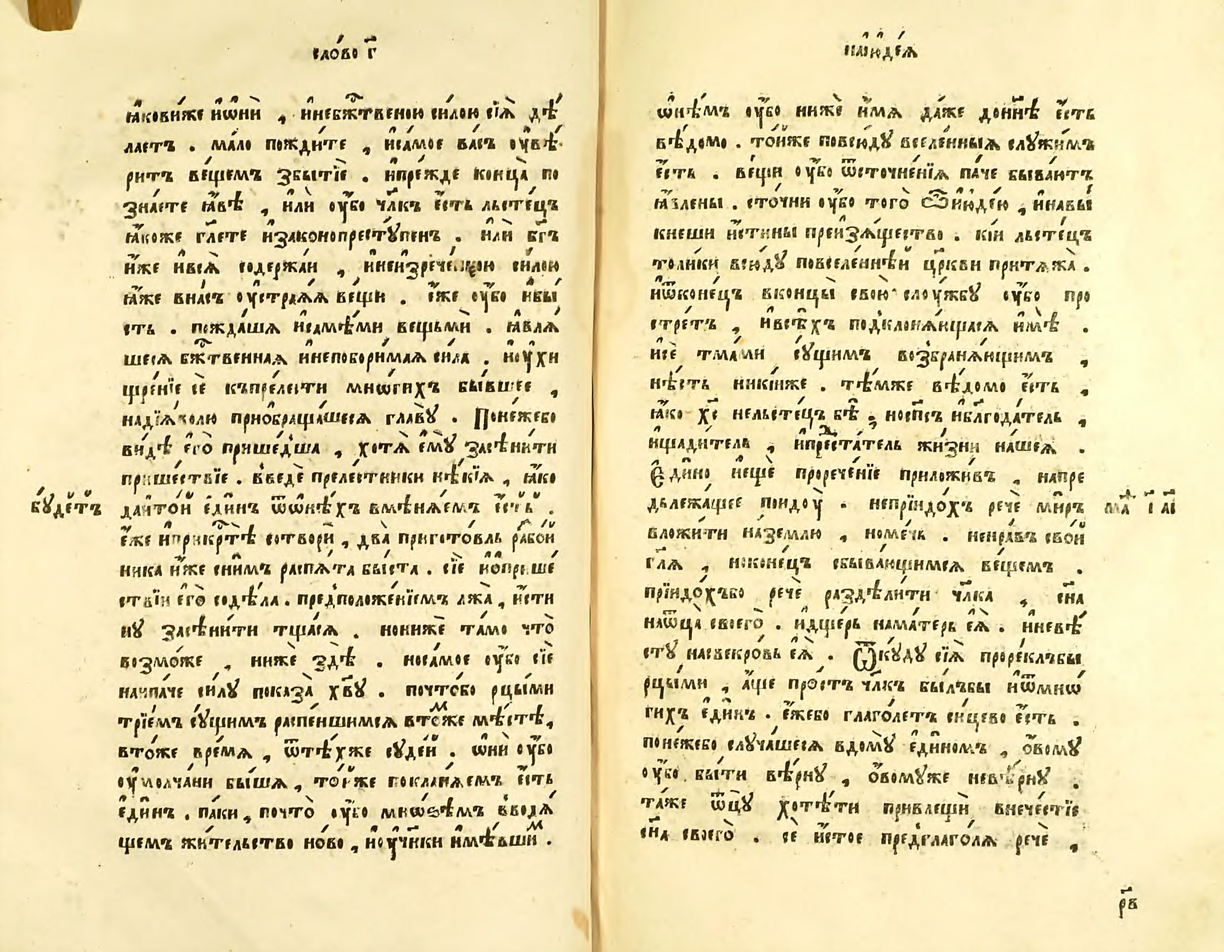 сло́во г҃
ꙗ҆́кови́же и҆ѡ҆нѝ , и҆небж҃твеною си́лою сїѧ̀ дѣ́
лаетъ . ма́ло пожди́те , и҆са́мое ва́съ оу҆вѣ́
ритъ ве́щемъ збы́тїе . и҆пре́жде конца̀ по
зна́ете ꙗ҆́вѣ , и҆лѝ оу҆́бо чл҃къ є҆́сть льсте́цъ
ꙗ҆́коже гл҃ете и҆законопресту́пенъ . и҆лѝ бг҃ъ
и҆́же и҆всѧ̀ содержа́и , и҆неизрече́нною си́лою
ꙗ҆́же вна́съ оу҆страѧ́ѧ ве́щи . є҆́же оу҆́бо и҆бы́
сть . пожда́шѧ и҆самѣ́ми вещьмѝ . ꙗ҆влѧ́
шесѧ бж҃твеннаѧ и҆непобори́маѧ си́ла . и҆оу҆хи
щре́нїе сѐ къпреле́сти мно́гихъ бы́вшее ,
надїѧ́волю приѡбраща́шесѧ главꙋ̀ . Поне́жебо
ви́дѣ є҆го̀ прише́дша , хотѧ̀ є҆мꙋ̀ засѣни́ти
прише́ствїе . введѐ преле́стники нѣ́кїѧ , ꙗ҆́ко
бꙋ́детъ
да и҆то́й є҆ди́нъ ѿѡ҆нѣ́хъ вмѣнѧ́емъ є҆́сть .
є҆́же и҆прикрⷭ҇тѣ̀ сотворѝ , два̀ пригото́вль ра́збой
ника и҆́же сни́мъ распѧ́та бы́ста . сїѐ и҆поприше́
ствїи є҆го̀ содѣ́ла . предположе́нїемъ лжа̀ , и҆́сти
нꙋ засѣни́ти тща́сѧ . но нижѐ та́мо что̀
возмо́же , нижѐ здѣ̀ . носа́мое оу҆́бо сїѐ
наипа́че си́лꙋ показа̀ хв҃ꙋ . почто́бо рцы́ми
трїе́мъ сꙋ́щимъ распе́ншимсѧ вто́мже мѣ́стѣ ,
вто́же вре́мѧ , ѿтѣ́хже сꙋде́й . ѡ҆ни̑ оу҆́бо
оу҆молча́ни бы́шѧ , то́йже поклонѧ́емъ є҆́сть
є҆ди́нъ . па́ки , почто̀ оу҆́бо мно́ѕѣмъ вводѧ́
щемъ жи́тельство но́во , и҆оу҆ч҃ники и҆мѣ́вшиⷨ .
наїюде́ѧ
ѡ҆нѣ́мъ оу҆́бо нижѐ и҆́мѧ да́же дони́нѣ є҆́сть
вѣ́домо . то́йже повсю́дꙋ вселе́нныѧ слꙋжи́мъ
є҆́сть . ве́щи оу҆́бо ѿсточне́нїѧ па́че быва́ютъ
ꙗ҆вле́ны . сточнѝ оу҆́бо того̀ ѽ и҆ю́дею , и҆навы́
кнеши и҆́стины преизѧ́щество . кі́и льсте́цъ
толи́ки всю́дꙋ повселе́ннѣй цр҃кви притѧжа̀ .
и҆ѿконе́цъ вконцы̀ свою̀ слꙋ́жбꙋ оу҆́бо про
стре́тъ , и҆всѣ́хъ подклонѧ́ющасѧ и҆мѣ̀ .
и҆сѐ тма́ми сꙋ́щимъ возбранѧ́ющимъ ,
нѣ́сть никі́иже . тѣ́мже вѣ́домо є҆́сть ,
ꙗ҆́ко хс҃ нельсте́цъ бѣ̀ , носп҃съ и҆бл҃года́тель ,
и҆щади́тель , и҆преⷣста́тель жи́зни на́шеѧ .
Є҆ди́но и҆є҆щѐ прорече́нїе приложи́въ , напре
длежа́щее поидꙋ̀ . непрїидо́хъ речѐ ми́ръ
маⷴ і҃ а҃і
вложи́ти назе́млю , номе́чь . ненра́въ сво́й
гл҃ѧ , ноконе́цъ сбыва́ющимсѧ ве́щемъ .
прїидо́хъбо речѐ раздѣли́ти чл҃ка , сн҃а
наѻ҆ц҃а̀ своего̀ . и҆дще́рь нама́терь є҆ѧ̀ . и҆невѣ́
стꙋ насвекро́вь є҆ѧ̀ . Ѿкꙋ́дꙋ сїѧ̀ проре́клъбы
рцы́ми , а҆́ще про́стъ чл҃къ бы́лъбы и҆ѿмно́
гихъ є҆ди́нъ . є҆́жебо глаго́летъ си́цево є҆́сть .
поне́жебо слꙋча́шесѧ вдомꙋ̀ є҆ди́номъ , о҆́вомꙋ
оу҆́бо бы́ти вѣ́рнꙋ , о҆́вомꙋже невѣ́рнꙋ .
та́же ѻ҆ц҃ꙋ̀ хотѣ́ти привлещѝ внече́стїе
сн҃а своего̀ . сѐ и҆́стое предглаго́лѧ речѐ ,
рв҃